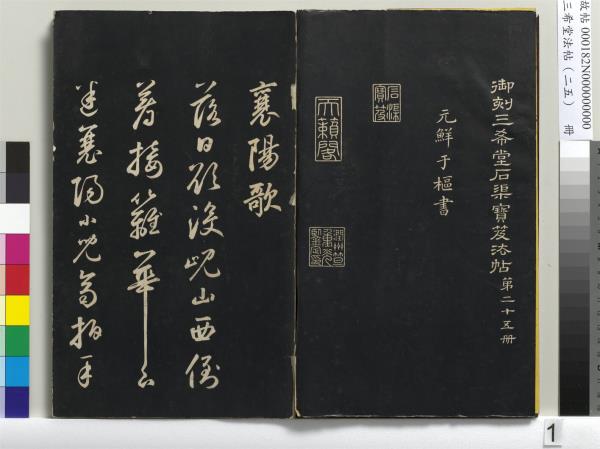 御刻三希堂石渠寶笈法帖第二十五冊
元鮮于樞書
石渠寶笈
天籟閣
襄陽歌
落日欲沒峴山西倒
著接䍦華下
迷襄陽小兒齊拍手
故帖 000182N000000000
三希堂法帖(二五) 冊
1